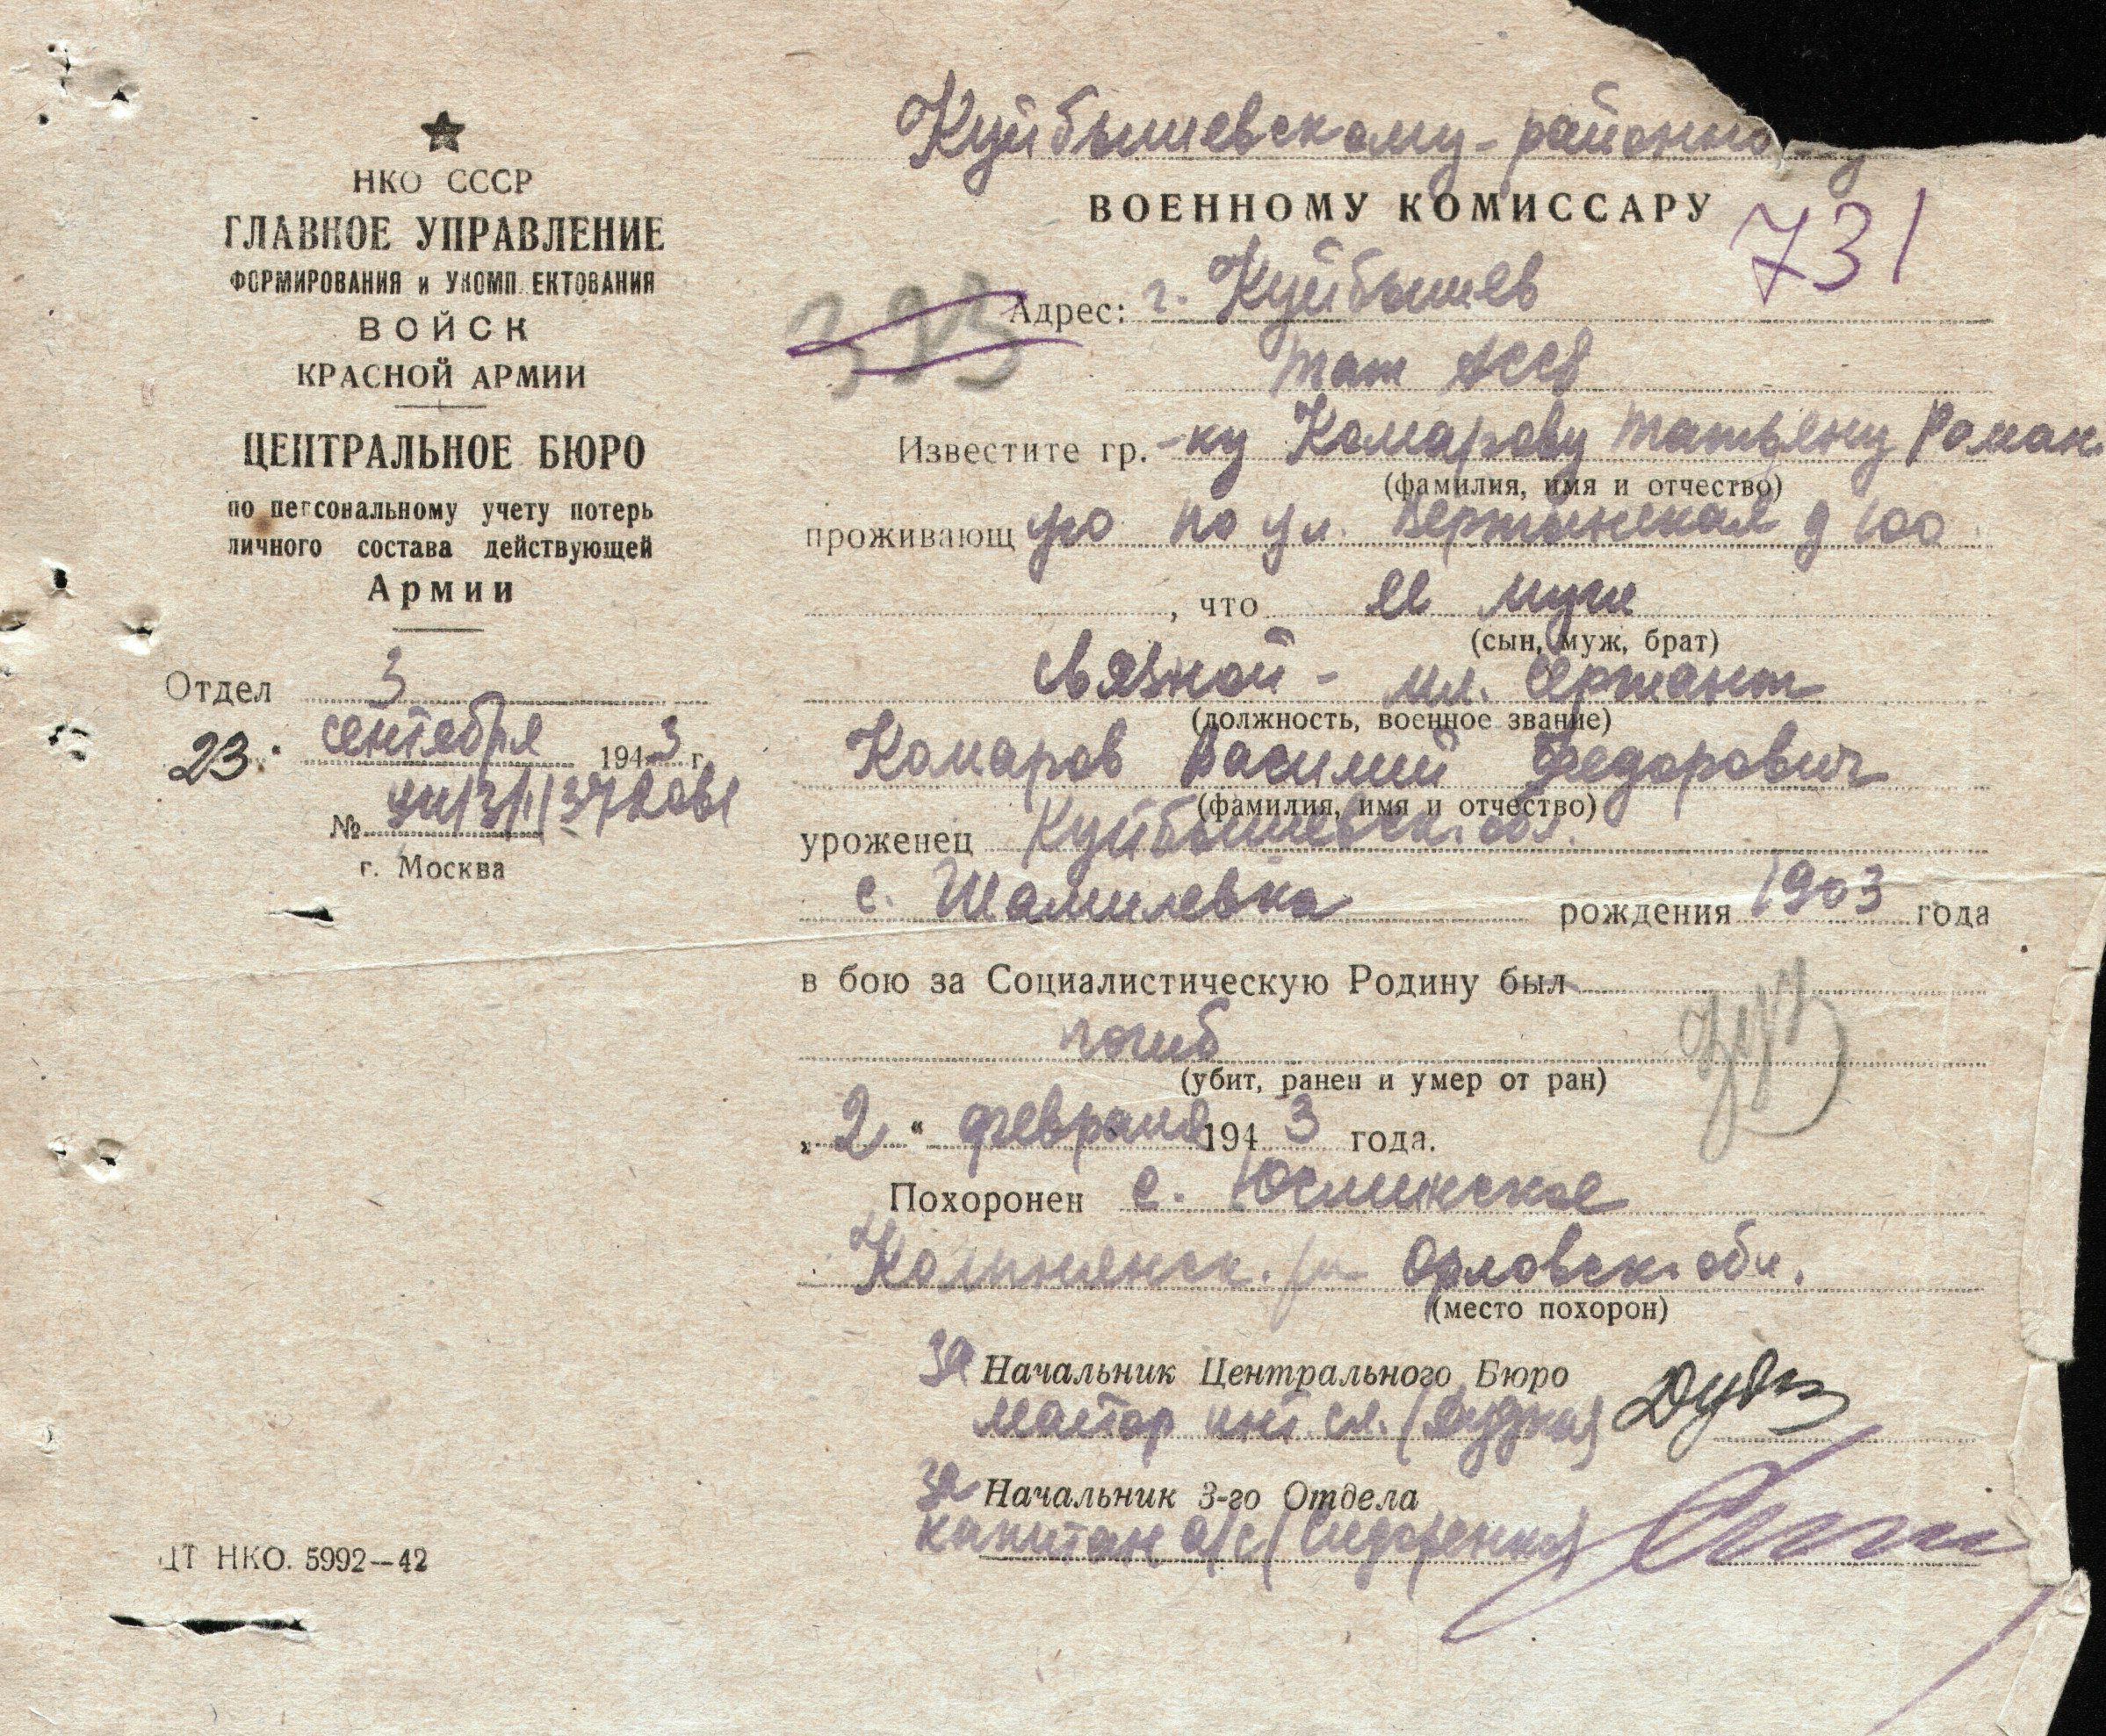 НКО СССР
ГЛАВНОЕ УПРАВЛЕНИЕ
ФОРМИРОВАНИЯ и УКОМП ЕКТОВАНИЯ
ВОЙСК
КРАСНОЙ АРМИИ
ЦЕНТРАЛЬНОЕ БЮРО
по персональному учету потерь
личного состава действующей
Армии
Отдел 3
23. сентября 1943 г.
№
г. Москва
ЦТ НКО. 5992—42
Куйбышевскому-районно
ВОЕННОМУ КОМИССАРУ
731
Адрес: г. Куйбышев
Тат АССР
Известите гр.-ку Комарову Татьяну Роман.
(фамилия, имя и отчество)
проживающ ую по ул. д 100
, что ее муж
(сын, муж, брат)
связной - мл. сержант
(должность, военное звание)
Комаров Василий Федорович
(фамилия, имя и отчество)
уроженец Куйбышевск. обл.
с. Шамилевка рождения 1903 года
в бою за Социалистическую Родину был
погиб
(убит, ранен и умер от ран)
„2“ февраля 1943 года.
Похоронен с.
Орловск. обл.
(место похорон)
За Начальник Центрального Бюро
майор инт. сл.
За Начальник 3-го Отдела
капитан а/с (Сидоренко)